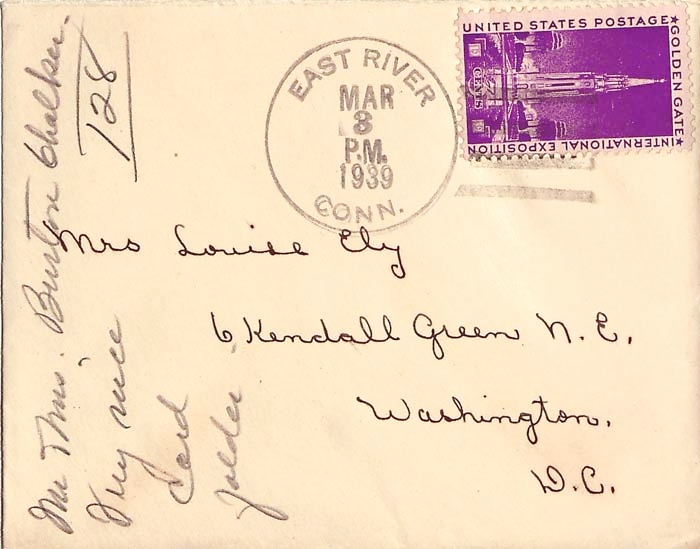 UNITED STATES POSTAGE
GOLDEN GATE
INTERNATIONAL EXPOSITION
CENTS
EAST RIVER
MAR
8
P.M.
1939
CONN.
Mrs Louise Ely
6 Kendall Green N.E.
Washington.
D.C.
Burton Chalker.
Very nice
Card
folder
128